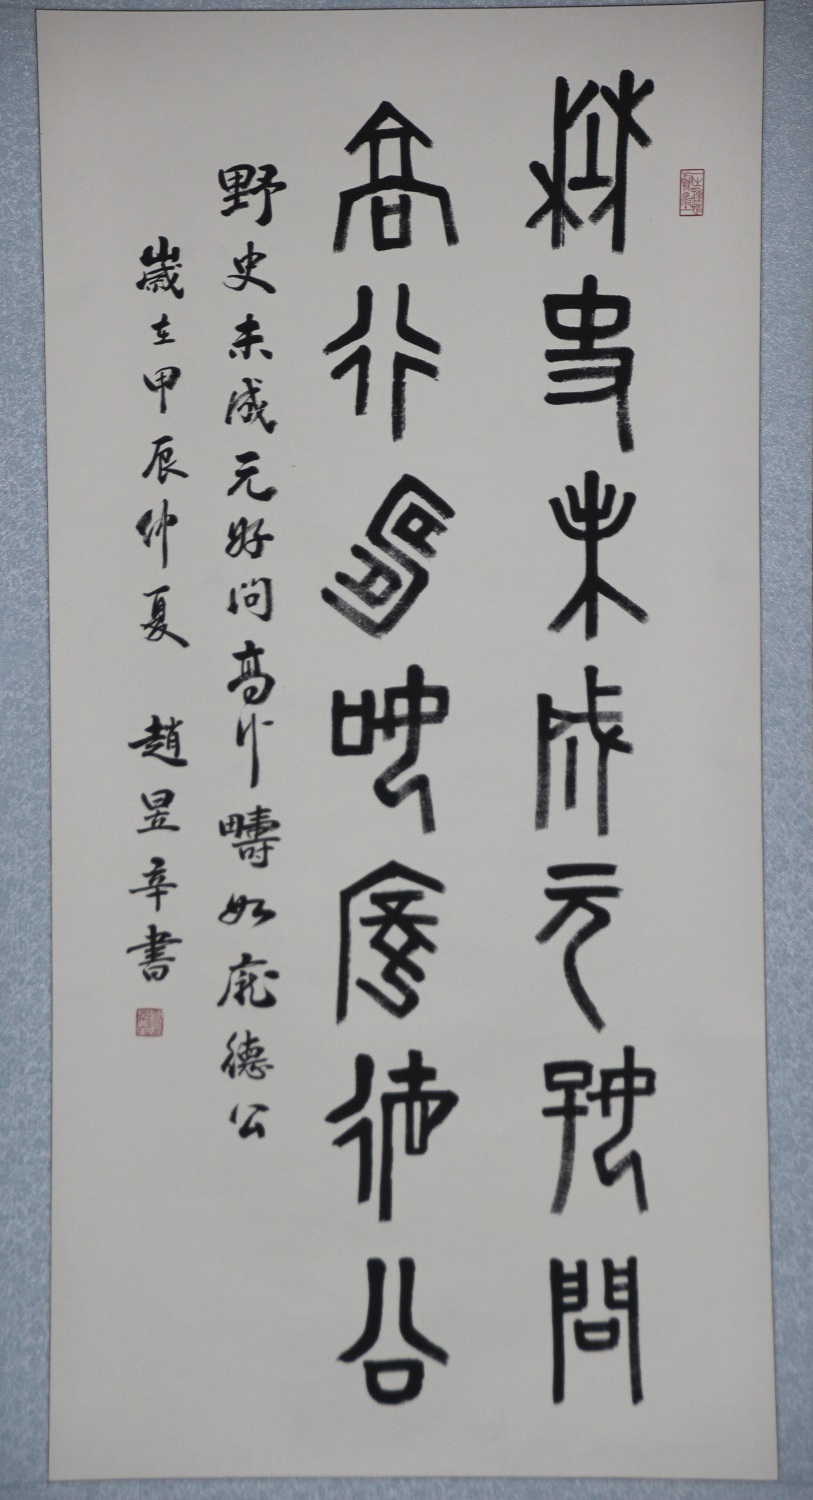 野史未成元好問
高行疇如龐德公
野史未成元好問高行疇如龐德公
歲在甲辰仲夏 趙昱辛書